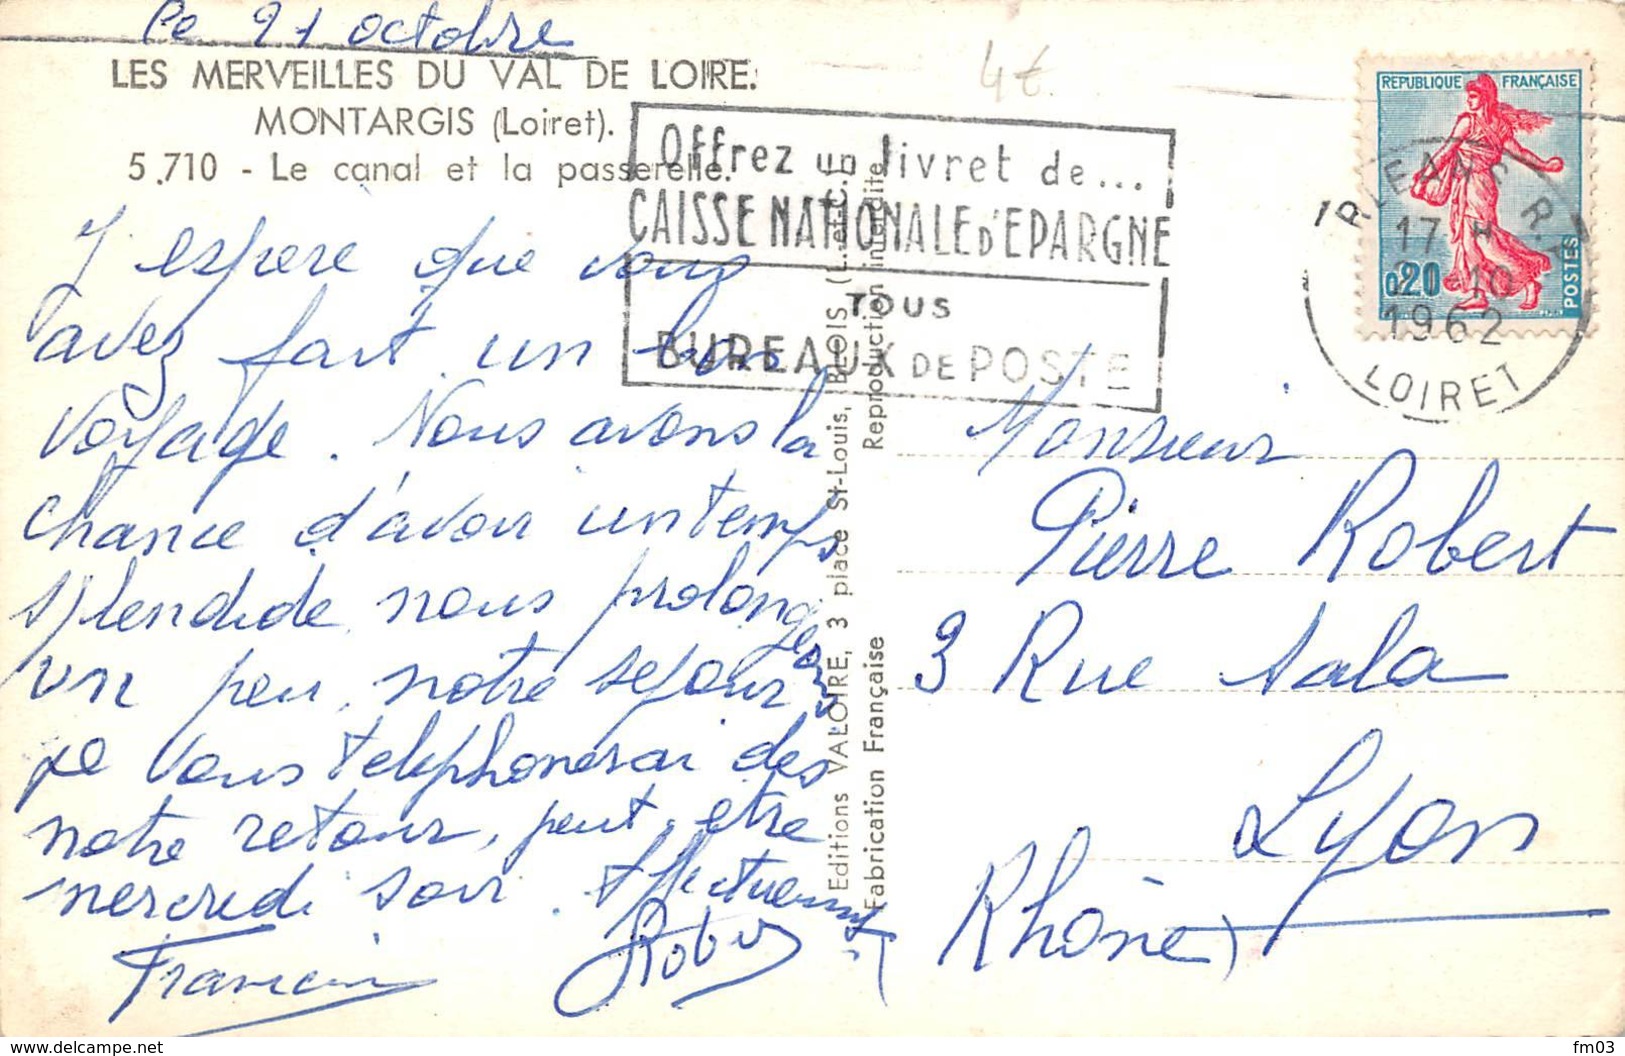 Le 21 octobre
LES MERVEILLES DU VAL DE LOIRE.
MONTARGIS (Loiret).
5.710 - Le canal et la passerelle.
J'espère que vous
avez fait un bon
voyage. Nous avons la
chance d'avoir un temps
splendide nous prolongeons
un peu notre sejour
je vous telephonerai des
notre retour, peut etre
mercredi soir. Affectueusement
Francin
Robert
4€
Offrez un livret de...
CAISSE NATIONALE D'EPARGNE
TOUS
BUREAUX DE POSTE
Editions VALOIRE, 3 place St-Louis, BLOIS (L.-et-C.)
Fabrication Française
Reproduction interdite
REPUBLIQUE FRANÇAISE
0,20
POSTES
ORLEANS R.P.
17 H
10
1962
LOIRET
Monsieur
Pierre Robert
3 Rue Sala
Lyon
(Rhône)
fm03